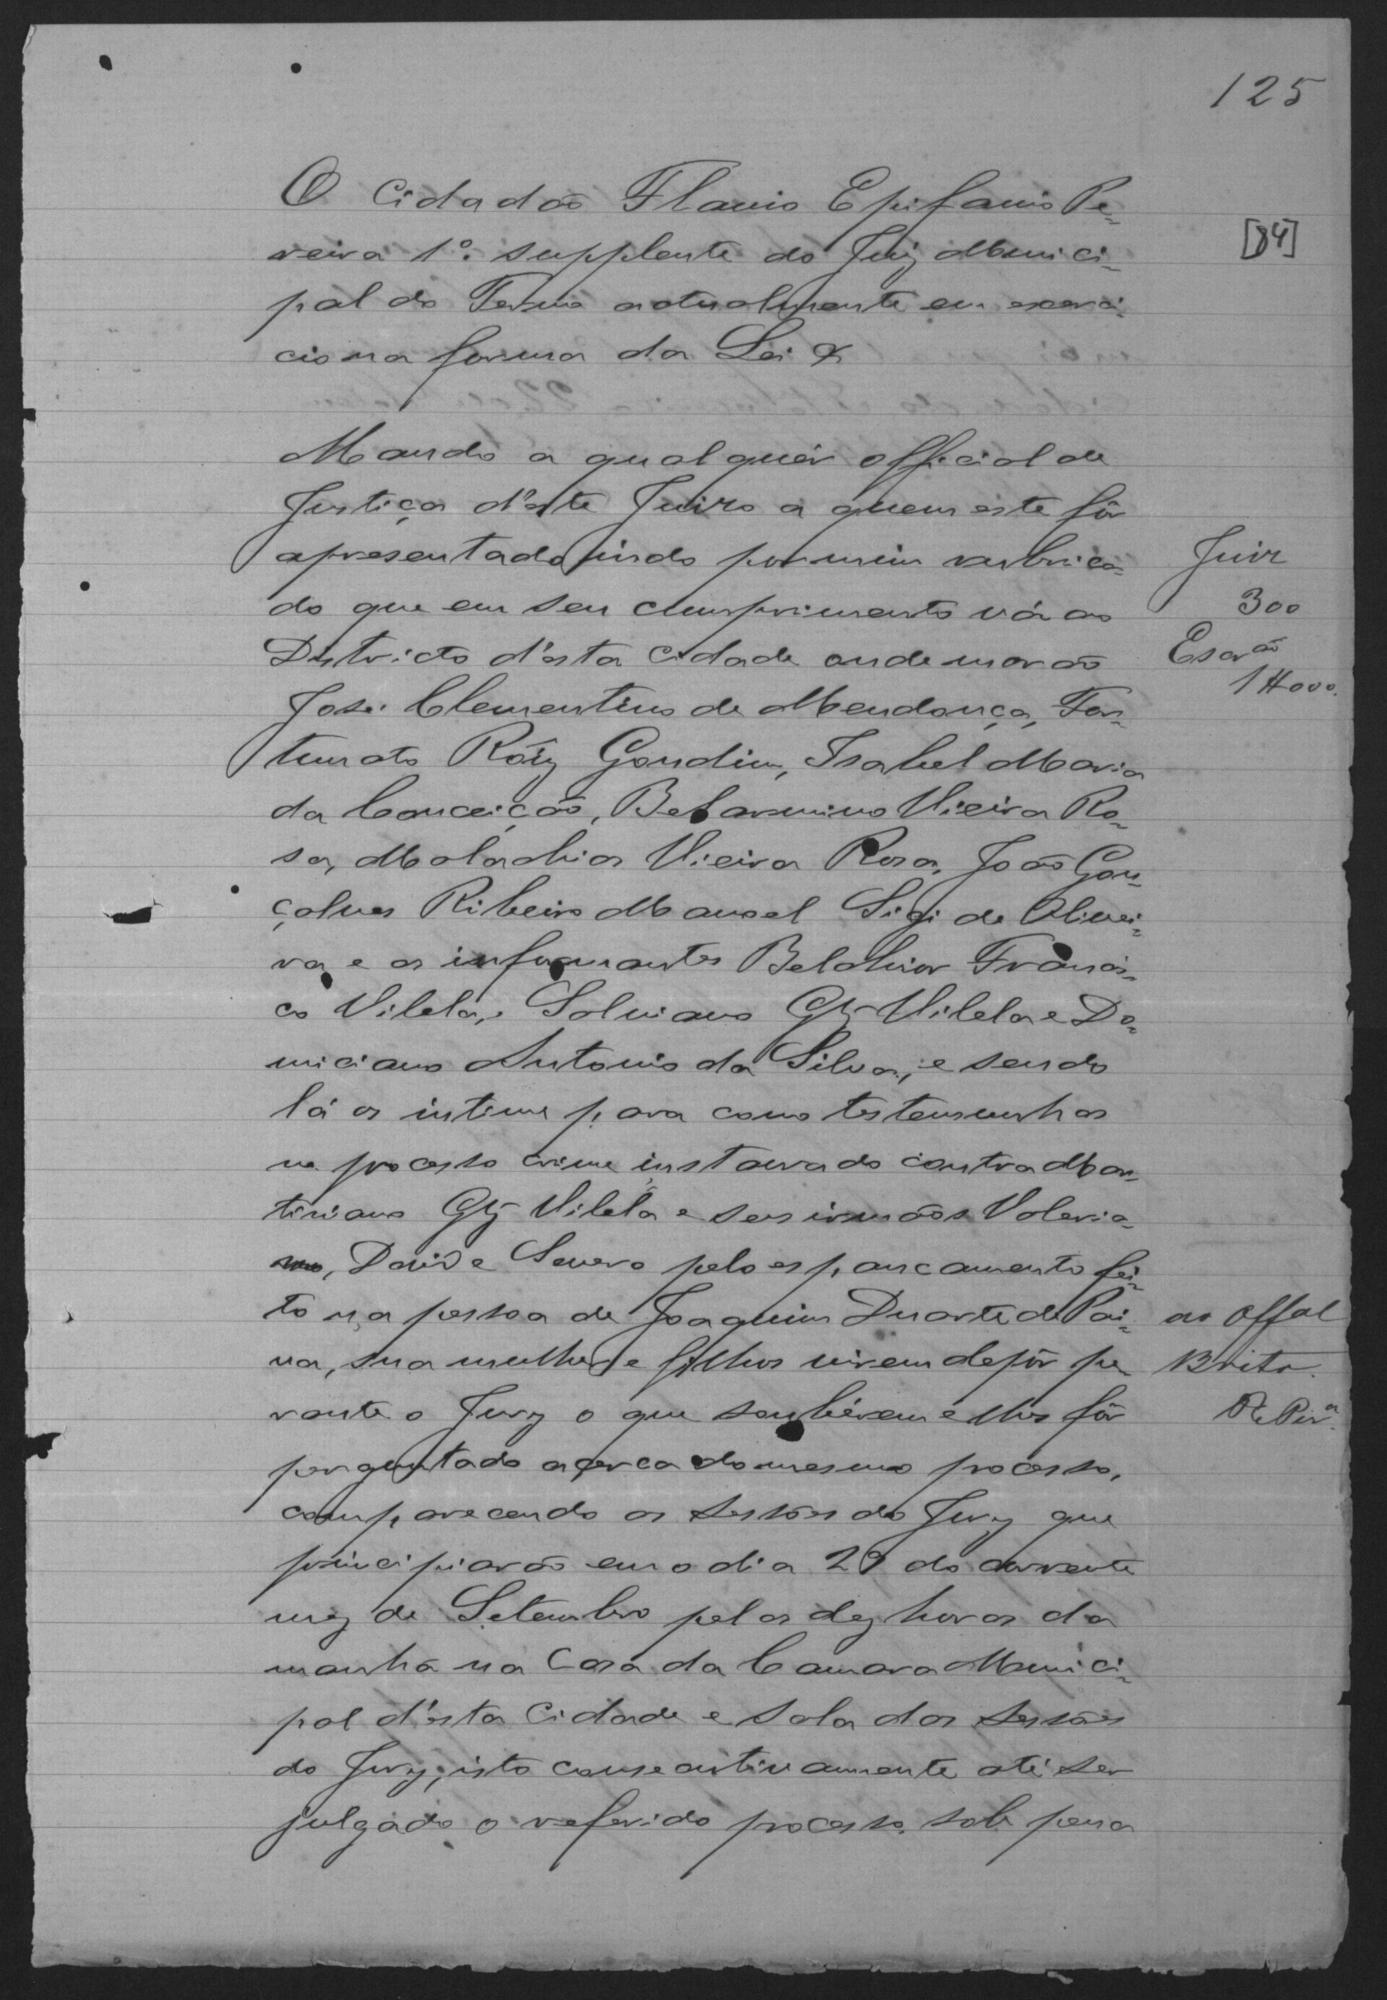 125
[84]
O Cidadão Flavio Epifanio Pe-
reira 1º. supplente do Juiz Munici-
pal do Termo actualmente em exerci-
cio na forma da Lei &
Mando a qualquér official de
Justiça d'este Juizo a quem este fôr
apresentado indo por mim rubrica-
do que em seu cumprimento vá ao
Districto d'ésta Cidade onde morão
José Clementino de Mendonça, For-
tunato Róiz Gondim, Isabel Maria
da Conceição, Belarmino Vieira Ro-
sa, Malachias Vieira Rosa, João Gon-
çalves Ribeiro Manoel Gigi de Olivei-
ra e os informantes Belchior Francis-
co Vilela, Salviano Glz Vilela e Do-
miciano Antonio da Silva, e sendo
lá os intime para como testemunhas
no processo crime instaurado contra Mar-
tiniano Glz Vilela e seus irmãos Valeria-
no, David e Severo pelo espancamento fei-
to na pessoa de Joaquim Duarte de Pai-
va, sua mulher e filhos virem depôr pe-
rante o Jury o que soubérem e lhes fôr
perguntado acerca do mesmo procésso,
comparecendo as sessões do Jury que
principiarão em o dia 29 do corrente
mez de Setembro pelas dez horas da
manhã na Casa da Camara Munici-
pal d'ésta Cidade e sala das sessões
do Jury, isto consecutivamente até ser
julgado o referido processo, sob pena
Juiz
300
Escrão
1#000
ao Offal
Brito.